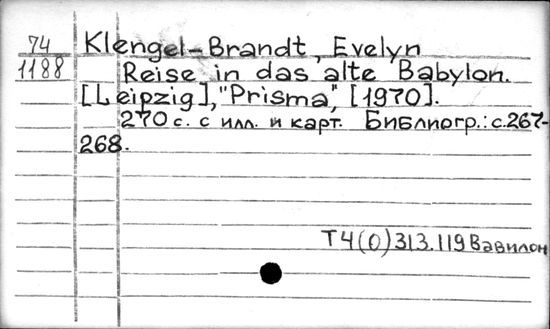 74 Klengel-Brandt, Evelyn
1188 Reise in das alte Babylon.
[Leipzig], "Prisma", [1970].
270 с. с илл. и карт. Библиогр.: с. 267-
268.
Т4(0)313.119 Вавилон